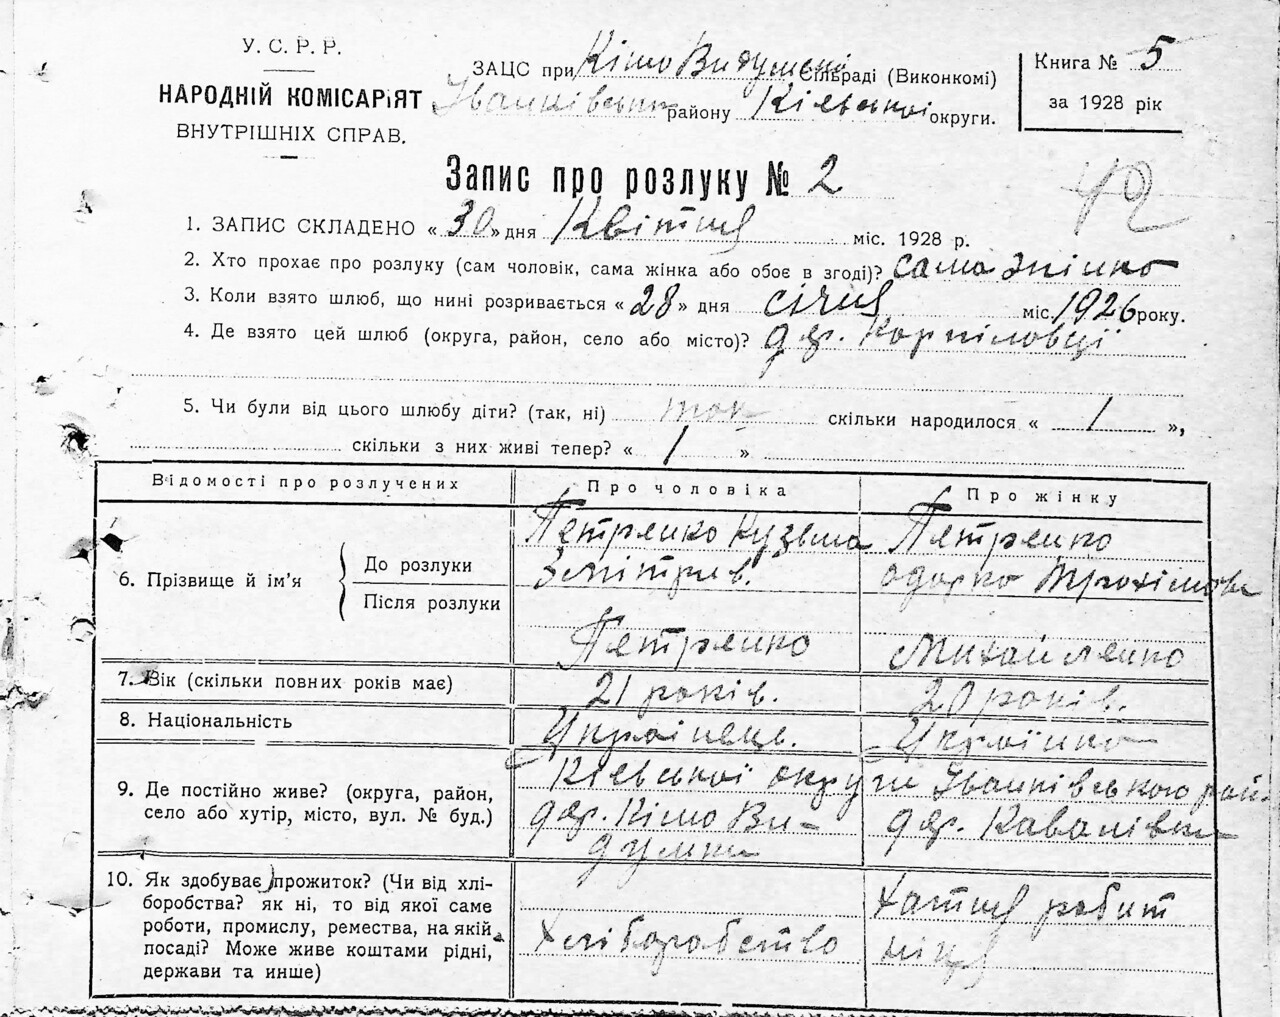 У. С. Р. Р.
НАРОДНІЙ КОМІСАРІЯТ
ВНУТРІШНІХ СПРАВ.
ЗАЦС при Кімо Видумсткі Сільраді (Виконкомі)
Іванківськ району Київської округи.
Книга № 5
за 1928 рік
Запис про розлуку № 2
42
1. ЗАПИС СКЛАДЕНО « 30 » дня Квітня міс. 1928 р.
2. Хто прохає про розлуку (сам чоловік, сама жінка або обоє в згоді)? сама жінка
3. Коли взято шлюб, що нині розривається « 28 » дня січня міс. 1926 року.
4. Де взято цей шлюб (округа, район, село або місто)? дер. Корніловці
5. Чи були від цього шлюбу діти? (так, ні) так скільки народилося « 1 »,
скільки з них живі тепер? « 1 »
Відомості про розлучених
Про чоловіка
Про жінку
6. Прізвище й ім'я
До розлуки
Після розлуки
Петренко Кузьма
Дмітрів.
Петренко
Петренко
одарка Трохімова
Михайленко
7. Вік (скільки повних років має)
21 років.
20 років.
8. Національність
Українець.
Українка
9. Де постійно живе? (округа, район,
село або хутір, місто, вул. № буд.)
Кієвської округи Іванківського рай.
дер. Кімо Ви-
думка
дер. Кавалівка
10. Як здобуває прожиток? (Чи від хлі-
боробства? як ні, то від якої саме
роботи, промислу, ремества, на якій
посаді? Може живе коштами рідні,
держави та инше)
Хліборобство
Хатня робит
ніця